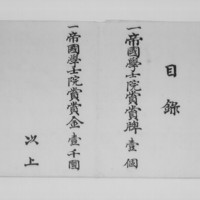 目錄
一帝國學士院賞賞牌壹個
一帝國學士院賞賞金壹千圓
以上